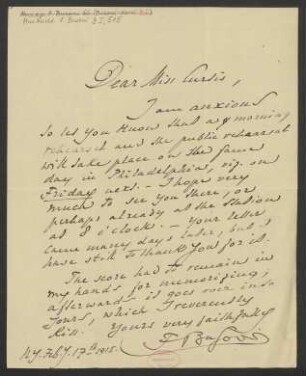 Dear Miss Curtis,
I am anxious
to let you know that my morning
rehearsal and the public rehearsal
will take place on the same
day in Philadelphia, viz. on
Friday next. – I hope very
much to see you there, or
perhaps already at the Station
at 8 o'clock. – Your letter
came many days later, but I
have still to thank you for it.
The score had to remain in
my hands for memorizing;
afterwards it goes over into
yours, which I reverently
kiss.
Yours very faithfully
F Busoni
N.Y. Feb. 17th 1915.